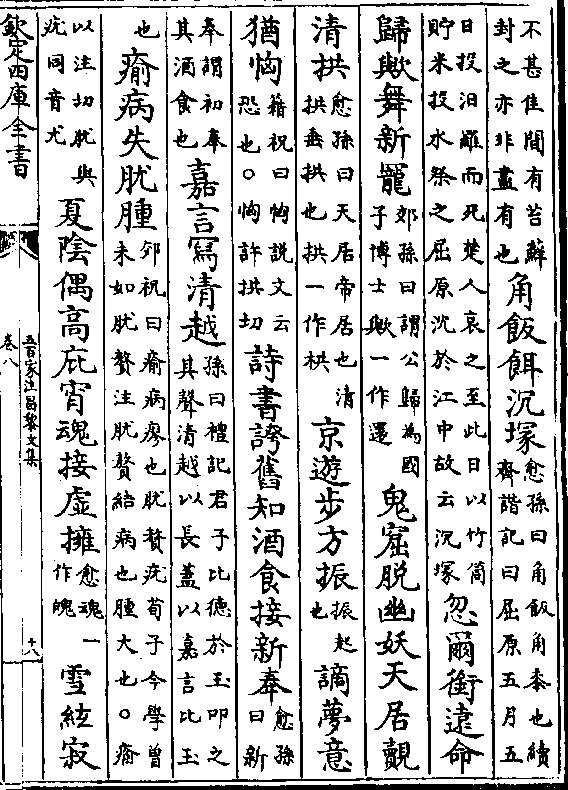 不甚佳間有苔蘚
封之亦非盡有也角飯餌沉塚愈孫曰角飯角黍也續
齊諧記曰屈原五月五
日投汨羅而死楚人哀之至此日以竹筒
貯米投水祭之屈原沉於江中故云沉塚忽爾銜遠命
歸歟舞新寵郊孫曰謂公歸為國
子博士歟一作還鬼窟脫幽妖天居覿
清拱愈孫曰天居帝居也清
拱垂拱也拱一作栱京遊步方振振起
也謫夢意
猶恟籍祝曰恟說文云
恐也○恟許拱切詩書誇舊知酒食接新奉愈孫
曰新
奉謂初奉
其酒食也嘉言寫清越孫曰禮記君子比德於玉叩之
其聲清越以長蓋以嘉言比玉
也瘉病失肬腫郊祝曰瘉病瘳也肬贅疣荀子今學曾
未如肬贅注肬贅結病也腫大也○瘉
以注切肬與
疣同音尤夏陰偶高庇宵魂接虛擁愈魂一
作魄雪絃寂
欽定四庫全書
五百家注昌黎文集
卷八
十八